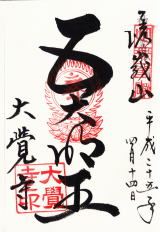 嵯峨山
平成二十五年
四月十四日
五大明王
大覺寺
大覺
寺印